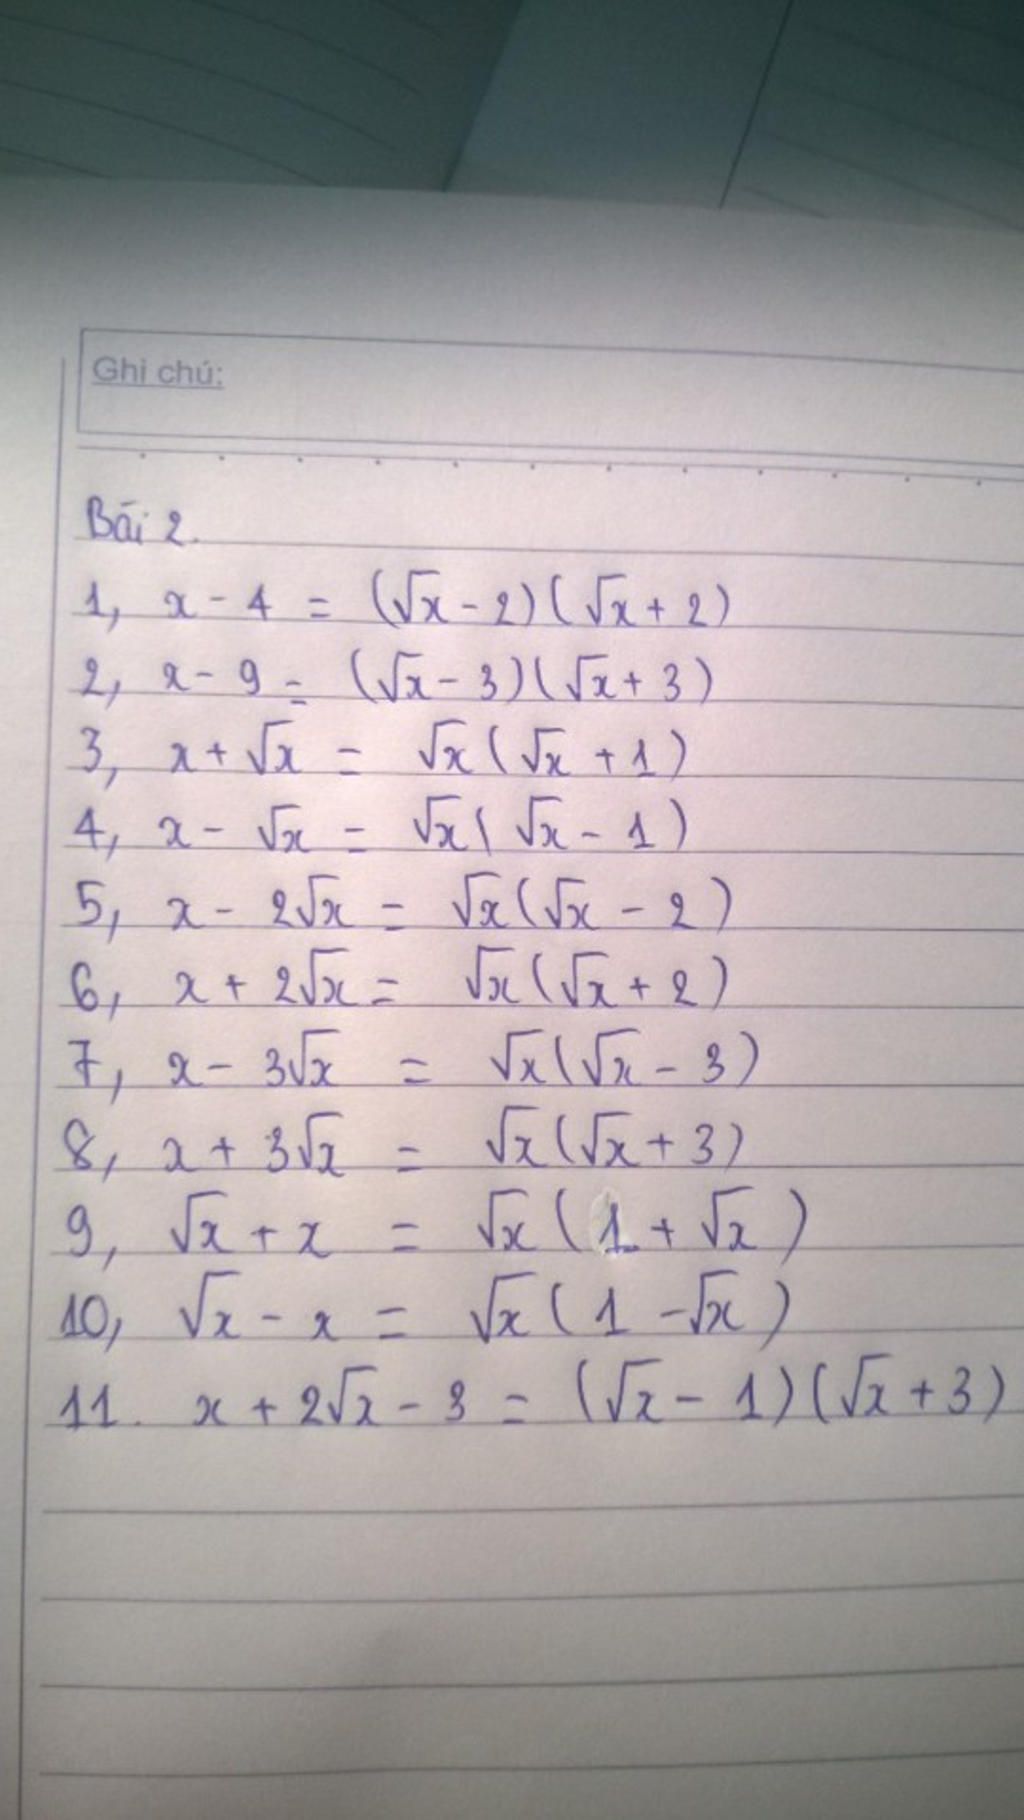 Ghi chú:
Bài 2.
1, x - 4 = (√x - 2)(√x + 2)
2, x - 9 = (√x - 3)(√x + 3)
3, x + √x = √x(√x + 1)
4, x - √x = √x(√x - 1)
5, x - 2√x = √x(√x - 2)
6, x + 2√x = √x(√x + 2)
7, x - 3√x = √x(√x - 3)
8, x + 3√x = √x(√x + 3)
9, √x + x = √x(1 + √x)
10, √x - x = √x(1 - √x)
11. x + 2√x - 3 = (√x - 1)(√x + 3)